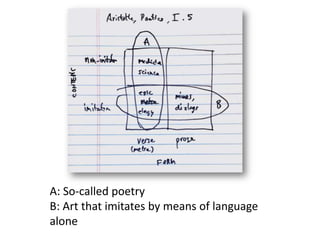 Aristotle, Poetics, I.5
A
non-imitation
medicine
science
CONTENT
imitation
epic
metre
elegy
mimes,
dialogs
B
verse
(metre)
prose
FORM
A: So-called poetry
B: Art that imitates by means of language
alone